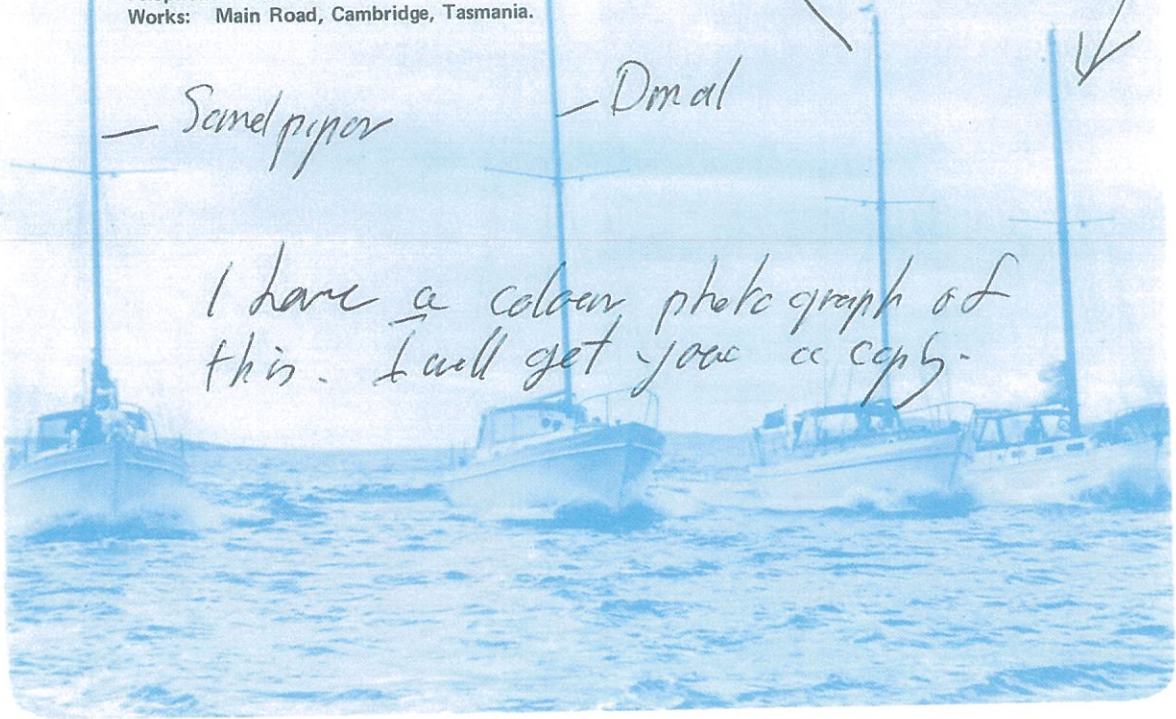 Works: Main Road, Cambridge, Tasmania.
— Sandpiper
— Dmal
I have a colour photograph of
this. I will get you a copy.